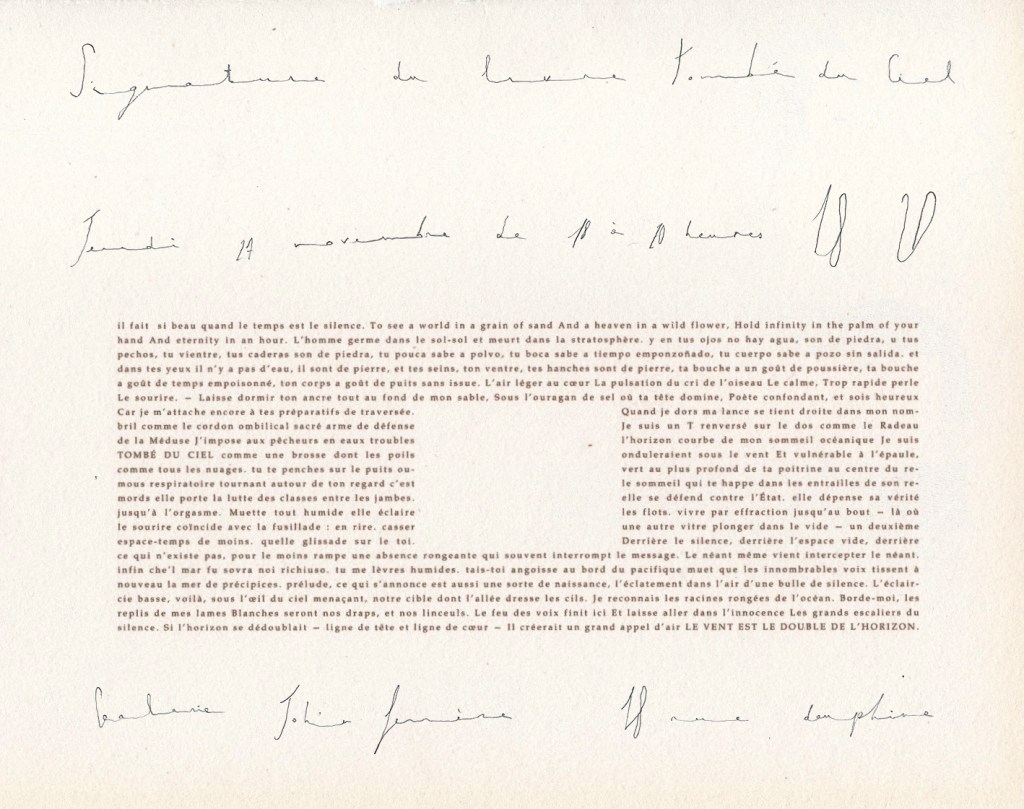 Signature du livre Tombé du Ciel
Jeudi novembre de 18 à 20 heures
il fait si beau quand le temps est le silence. To see a world in a grain of sand And a heaven in a wild flower, Hold infinity in the palm of your
hand And eternity in an hour. L'homme germe dans le sol-sol et meurt dans la stratosphère. y en tus ojos no hay agua, son de piedra, u tus
pechos, tu vientre, tus caderas son de piedra, tu pouca sabe a polvo, tu boca sabe a tiempo emponzoñado, tu cuerpo sabe a pozo sin salida. et
dans tes yeux il n'y a pas d'eau, il sont de pierre, et tes seins, ton ventre, tes hanches sont de pierre, ta bouche a un goût de poussière, ta bouche
a goût de temps empoisonné, ton corps a goût de puits sans issue. L'air léger au cœur La pulsation du cri de l'oiseau Le calme, Trop rapide perle
Le sourire. – Laisse dormir ton ancre tout au fond de mon sable, Sous l'ouragan de sel où ta tête domine, Poète confondant, et sois heureux
Car je m'attache encore à tes préparatifs de traversée. Quand je dors ma lance se tient droite dans mon nom-
bril comme le cordon ombilical sacré arme de défense Je suis un T renversé sur le dos comme le Radeau
de la Méduse J'impose aux pêcheurs en eaux troubles l'horizon courbe de mon sommeil océanique Je suis
TOMBÉ DU CIEL comme une brosse dont les poils onduleraient sous le vent Et vulnérable à l'épaule,
comme tous les nuages. tu te penches sur le puits ou- vert au plus profond de ta poitrine au centre du re-
mous respiratoire tournant autour de ton regard c'est le sommeil qui te happe dans les entrailles de son re-
mords elle porte la lutte des classes entre les jambes. elle se défend contre l'État. elle dépense sa vérité
jusqu'à l'orgasme. Muette tout humide elle éclaire les flots. vivre par effraction jusqu'au bout – là où
le sourire coïncide avec la fusillade : en rire. casser une autre vitre plonger dans le vide – un deuxième
espace-temps de moins. quelle glissade sur le toi. Derrière le silence, derrière l'espace vide, derrière
ce qui n'existe pas, pour le moins rampe une absence rongeante qui souvent interrompt le message. Le néant même vient intercepter le néant.
infin che'l mar fu sovra noi richiuso. tu me lèvres humides. tais-toi angoisse au bord du pacifique muet que les innombrables voix tissent à
nouveau la mer de précipices. prélude, ce qui s'annonce est aussi une sorte de naissance, l'éclatement dans l'air d'une bulle de silence. L'éclair-
cie basse, voilà, sous l'œil du ciel menaçant, notre cible dont l'allée dresse les cils. Je reconnais les racines rongées de l'océan. Borde-moi, les
replis de mes lames Blanches seront nos draps, et nos linceuls. Le feu des voix finit ici Et laisse aller dans l'innocence Les grands escaliers du
silence. Si l'horizon se dédoublait – ligne de tête et ligne de cœur – Il créerait un grand appel d'air LE VENT EST LE DOUBLE DE L'HORIZON.
Galerie rue dauphine